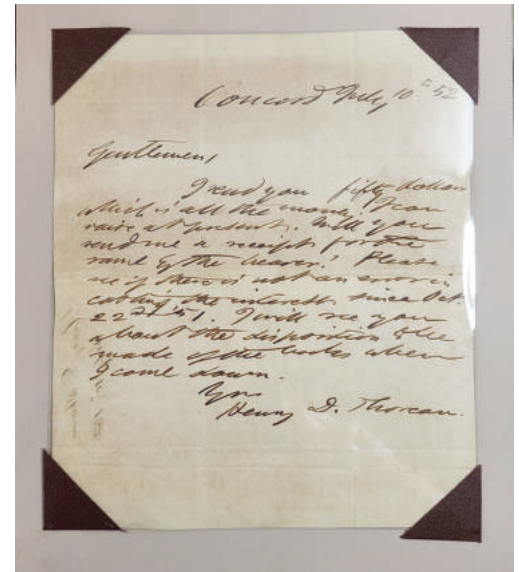 Concord July 10th 52
Gentlemen,
I send you fifty dollars
which is all the money I can
raise at present. Will you
send me a receipt for the
same by the bearer? Please
see if there is not an error in
casting the interest since Oct.
22nd 51. I will see you
about the disposition to be
made of the books when
I come down.
Yrs
Henry D. Thoreau.